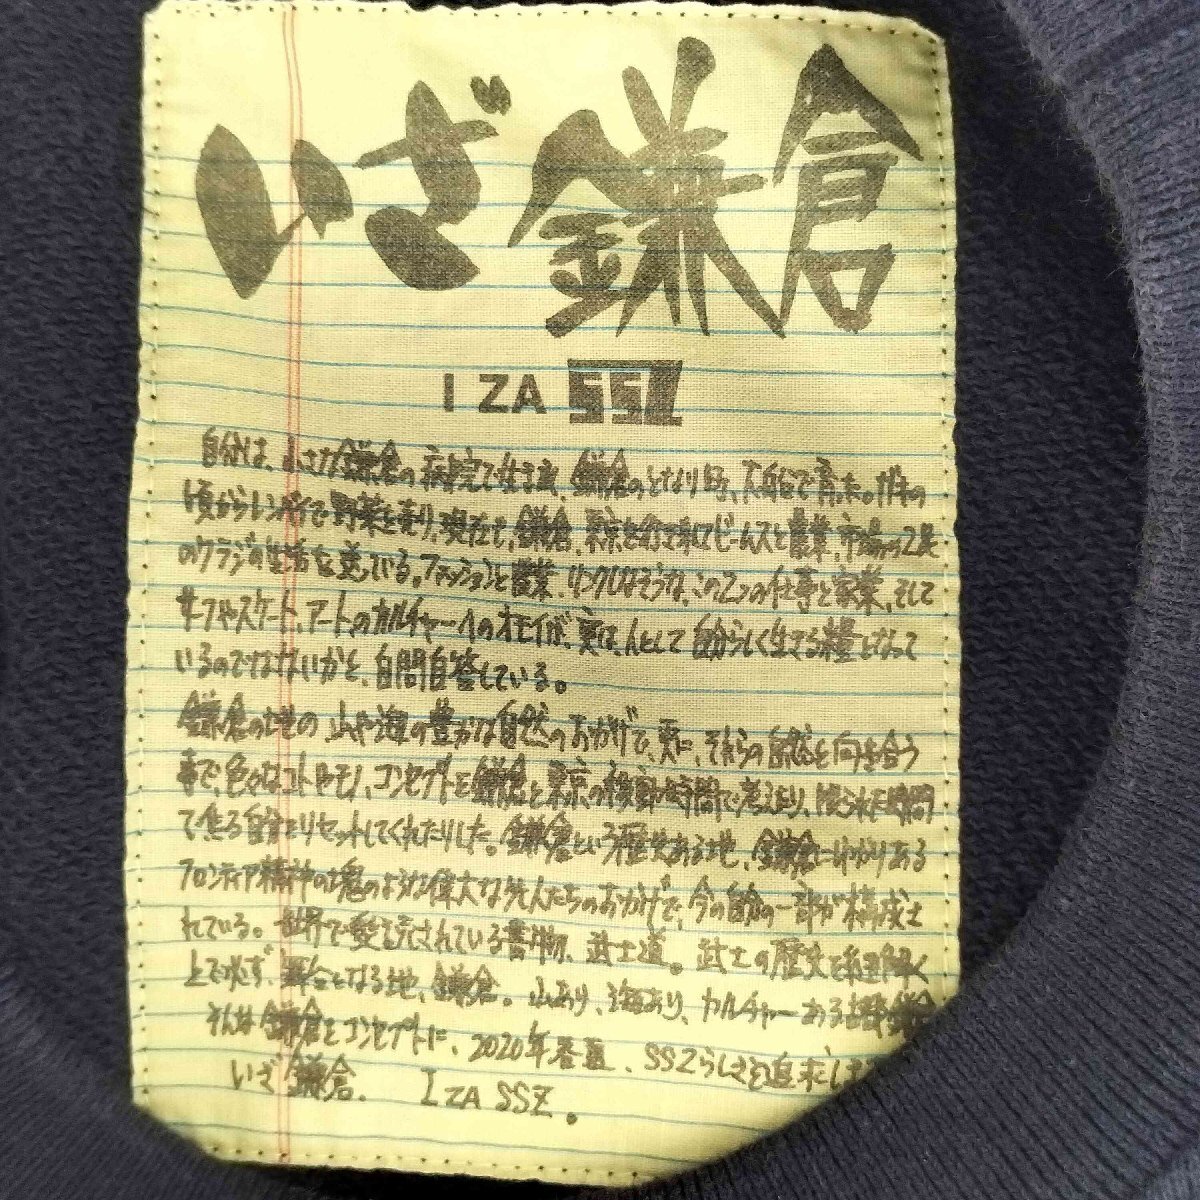 いざ鎌倉
IZA SSZ
自分は、小さな鎌倉の病院で生まれ、鎌倉のとなり町、大船で育った。
頃から 野菜を売り、現在も、鎌倉、東京を行き来しビームスと農業、市場
のワラジの生活を送っている。ファッションと農業、リンクしなそうな、この2つの仕事と家業、そして
サーフやスケート、アートのカルチャーへのオモイが、実は、人として自分らしく生きる糧となって
いるのではないかと、自問自答している。
鎌倉の地の、山や海の豊かな自然のおかげで、更に、それらの自然と向き合う
事で、色々なコトやモノ、コンセプトを鎌倉と東京の移動時間で考えたり、限られた時間
で焦る自分をリセットしてくれたりした。鎌倉という歴史ある地、鎌倉にゆかりある
フロンティア精神の塊のような偉大な先人たちのおかげで、今の自分の一部が構成さ
れている。世界で愛読されている書物、武士道。武士の歴史を紐解く
上で必ず、舞台となる地、鎌倉。山あり、海あり、カルチャーある 鎌倉
そんな鎌倉をコンセプトに、2020年春夏、SSZらしさを追求し
いざ鎌倉. IZA SSZ。